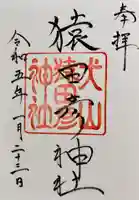 奉拝
猿田彦神社
犬山
猿田彦
神社
令和五年一月二十三日